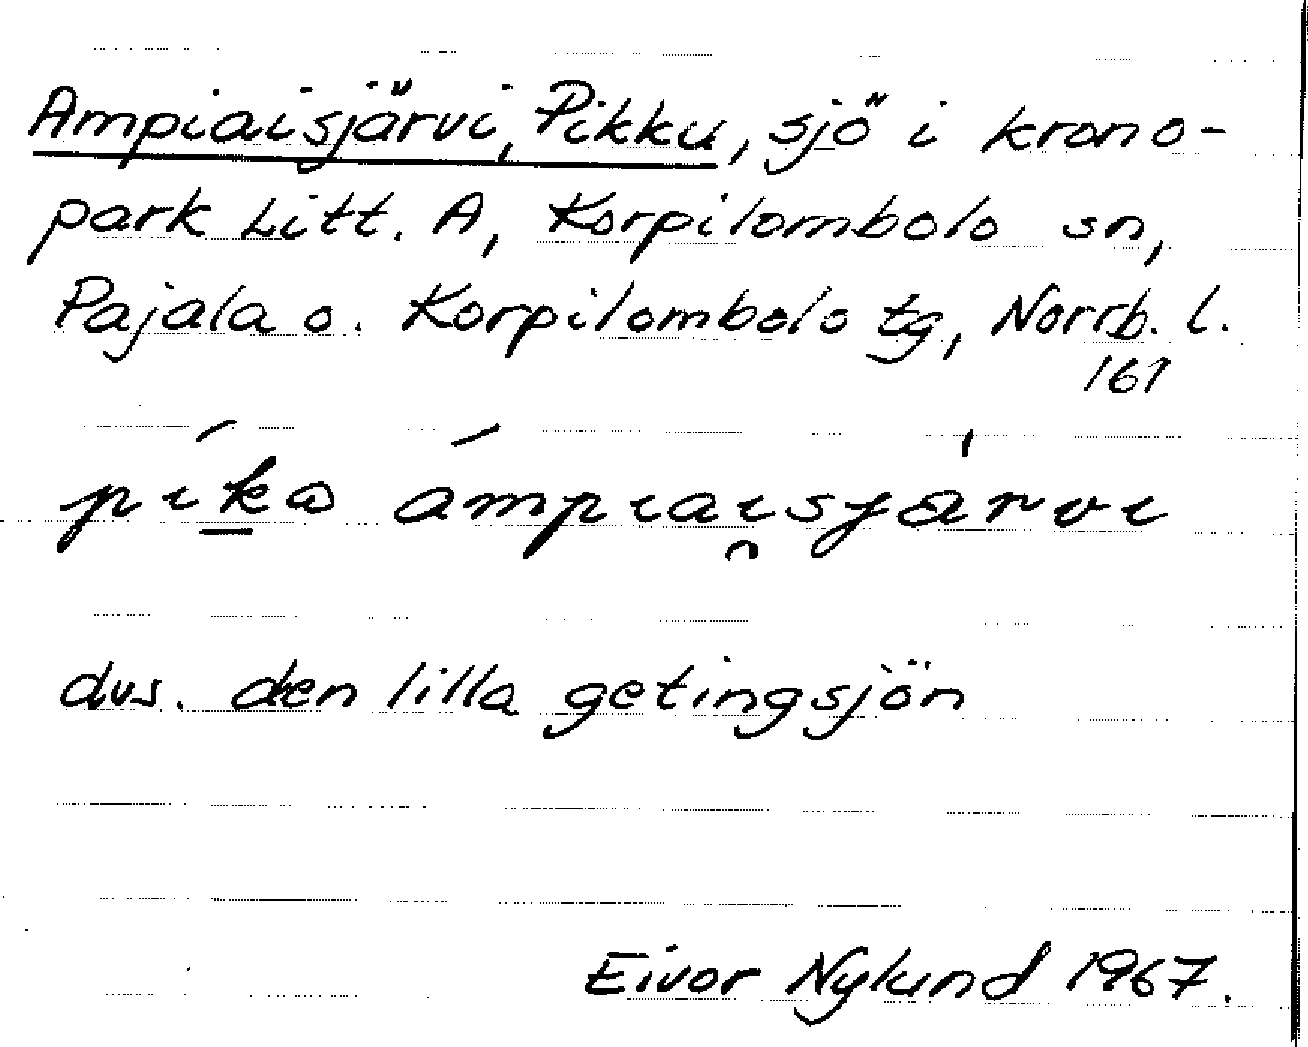 Ampiaisjärvi, Pikku, sjö i krono-
park Litt. A, Korpilombolo sn,
Pajala o. Korpilombolo tg, Norrb. l.
161
pika ampiaisjärvi
dvs. den lilla getingsjön
Eivor Nylund 1967.